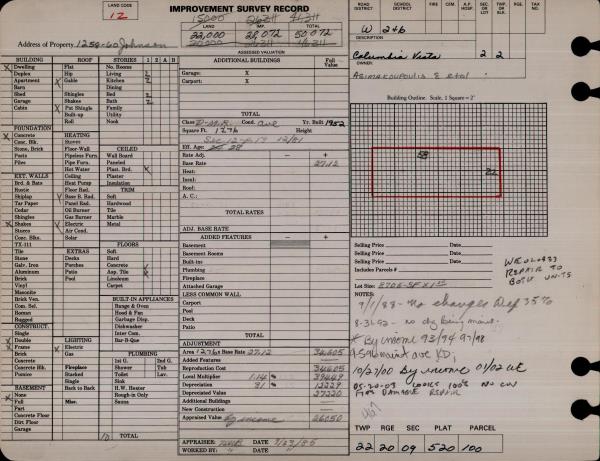 LAND CODE
12
IMPROVEMENT SURVEY RECORD
15000
LAND IMPR. TOTAL
22,000 28,072 50,072
Address of Property 1258-60 Johnson
ASSESSED VALUATION
ROAD DISTRICT SCHOOL DISTRICT FIRE CEM. A.P. HOSP. SEC. LOT TWP. OR BLK. RGE TAX NO.
W 246
DESCRIPTION
Columbia Vista 2 2
OWNER:
BUILDING ROOF STORIES 1 2 A B
Dwelling Flat No. Rooms
Duplex Hip Living
Apartment Gable Kitchen
Barn Dining
Shed Shingles Bed
Garage Shakes Bath
Cabin Pat Shingle Family
Built-up Utility
Roll Nook
FOUNDATION
Concrete HEATING
Conc. Blk. Stoves CEILED
Stone, Brick Floor-Wall Wall Board
Posts Pipeless Furn. Paneled
Piles Pipe Furn. Drywall
Hot Water Plast. Brd.
EXT. WALLS Ceiling Plaster
Brd. & Bats Heat Pump Insulation
Rustic Floor Rad. TRIM
Shiplap Base B. Rad. Soft
Tar Paper Panel Rad. Hardwood
Cedar Oil Burner Tile
Shingles Gas Burner Marble
Shakes Electric Metal
Stucco Air Con.
Conc. Blks. Solar
TX-111 FLOORS
Tile EXTRAS Soft
Stone Decks Hard
Galv. Iron Porches Concrete
Aluminum Patio Asp. Tile
Brick Pool Linoleum
Vinyl Carpet
Masonite
Brick Ven. BUILT-IN APPLIANCES
Com. Sel. Range & Oven
Roman Hood & Fan
Rugged Garbage Disp.
Dishwasher
CONSTRUCT. Inter Com.
Double LIGHTING Bar-B-Que
Frame Electric
Brick Gas PLUMBING
Concrete 1st G. 2nd G.
Concrete Blk. Fireplace Shower Tub
Pumice Stacked Toilet Lav.
Single Sink
BASEMENT Back to Back H.W. Heater
None Rough-in Only
Full Misc. Sauna
Part
Concrete Floor
Dirt Floor
Garage
TOTAL
ADDITIONAL BUILDINGS Full Value
Garage: X
Carpet: X
TOTAL
Class Cond. ave Yr. Built 1952
Square Ft. 1276 Height
Eff. Age:
Rate Adj. — +
Base Rate 27.12
Heat:
Insul:
Roof:
A. C.:
TOTAL RATES
ADJ. BASE RATE
ADDED FEATURES — +
Basement
Basement Rooms
Built-ins
Plumbing
Fireplace
Attached Garage
LESS COMMON WALL
Carport
Pool
Deck
Patio
TOTAL
ADJUSTMENT
Area 1276 x Base Rate 27.12 34605
Added Features
Reproduction Cost 34605
Local Multiplier 1.14 % 39449
Depreciation 31 % 12229
Depreciated Value 27220
Additional Buildings
New Construction
Appraised Value By income 26050
APPRAISER: DATE 7/23/85
WORKED BY: " DATE "
Building Outline. Scale, 1 Square = 2'
58
22
Selling Price Date
Selling Price Date
Selling Price Date
Includes Parcels #
Lot Size: 8706-SF X 1 st
NOTES:
REPAIR TO
BOTH UNITS
9/1/83 - No changes Def 35%
8-31-92 - no chg being maint.
* By income 93/94 97/98
10/27/00 By income 01/02 WE
05-20-03 LOOKS 100% NO CW
DAMAGE REPAIR
TWP RGE SEC PLAT PARCEL
22 20 09 520 100